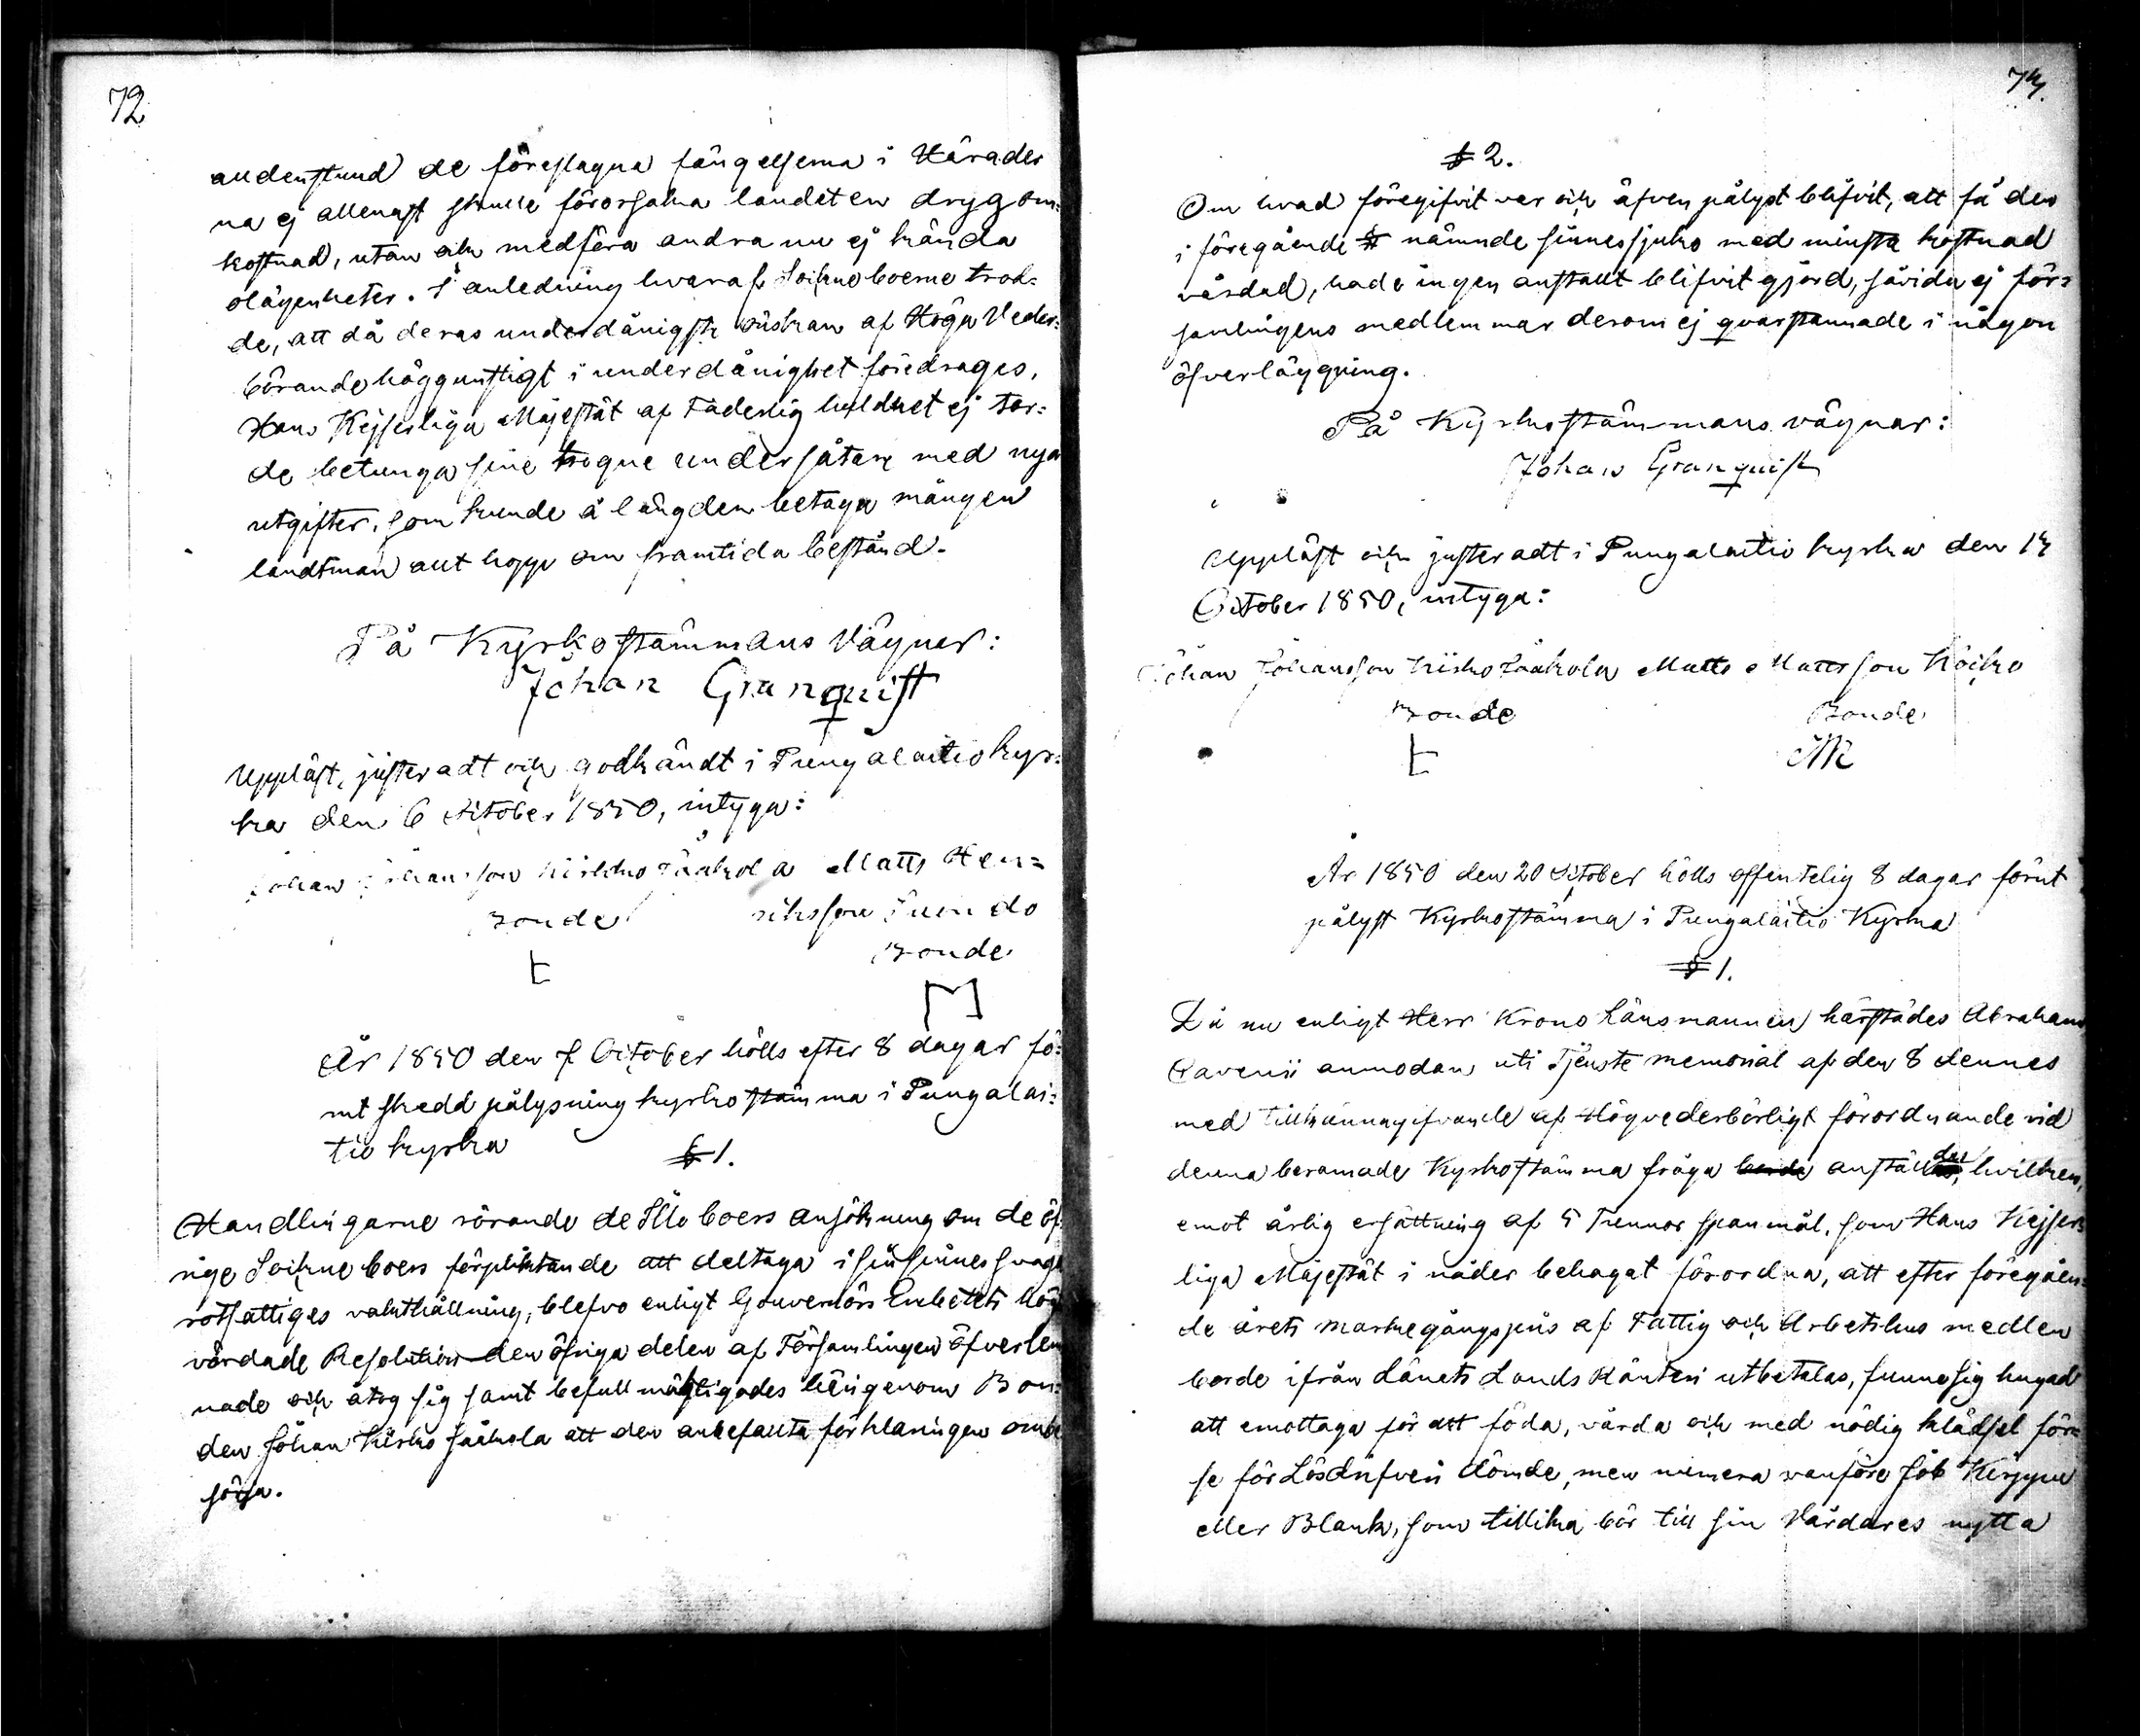 72
alldenstund de föreslagna fängelserna i Härader
na ej allenast skulle förorsaka landet en dryg om:
kostnad, utan och medföra andra nu ej kända
olägenheter. I anledning hvaraf Sockneboerne trod:
de, att då deras underdånigste önskan af Höga Veder:
börande höggunstigt i underdånighet föredrages,
Hans Kejserliga Majestät af Faderlig huldhet ej tor:
de betunga sine trogne undersåtare med nya
utgifter, som kunde å längden betaga mången
landtman allt hopp om framtida bestånd.
På Kyrkostämmans Vägnar:
Johan Granquist
Uppläst, justeradt och godkändt i Pungalaitio kyr:
ka den 6 October 1850, intyga:
Johan Johansson Kiisko Jaakola Matts Hen=
Bonde riksson Junido
Bonde
År 1850 den 7 October hölls efter 8 dagar fö:
rut skedd pålysning kyrkostämma i Pungalai:
tio kyrka
§ 1.
Handlingarne rörande de boers ansökning om de öf
rige Sockneboers förpliktande att deltaga i sin sinnessvage
rotfattiges vakthållning, blefvo enligt Gouvernörs Embetets Hög
vördade Resolution den öfriga delen af Församlingen öfverlem
nade och åtog sig samt befullmäktigades härigenom Bon:
den Johan Kiisko Jaakola att den anbefallta förklaringen ombe
sörja.
73.
§ 2.
Om hvad föregifvit var och äfven pålyst blifvit, att få den
i föregående § nämnde sinnessjuke med minsta kostnad
vårdad, hade ingen anstallt blifvit gjord, såvida ej för=
samlingens medlemmar derom ej qvarstannade i någon
öfverläggning.
På Kyrkostämmans vägnar:
Johan Granquist
Uppläst och justeradt i Pungalaitio kyrka den 13
October 1850, intyga:
Johan Johansson Kiisko Jaakola Matts Mattsson Koicko
Bonde Bonde
År 1850 den 20 October hölls offentelig 8 dagar förut
pålyst Kyrkostämma i Pungalaitio Kyrka
§ 1.
Då nu enligt Herr Krono Länsmannen härstädes Abraham
Cavenii anmodan uti Tjenste memorial af den 8 dennes
med tillkännagifvande af Högvederbörligt förordnande vid
denna beramade Kyrkostämma fråga anställdes, hvilken,
emot årlig ersättning af 5 Tunnor spanmål, som Hans Kejser=
liga Majestät i nåder behagat förordna, att efter föregåen=
de årets markegångspris af Fattig och Arbetshus medlen
borde ifrån Länets Lands Ränteri utbetalas, funne sig hugad
att emottaga för att föda, vårda och med nödig klädsel för=
se för Lösdrifveri dömde, men numera vanföre Job Kirppu
eller Blank, som tillika bör till sin Vårdares nytta